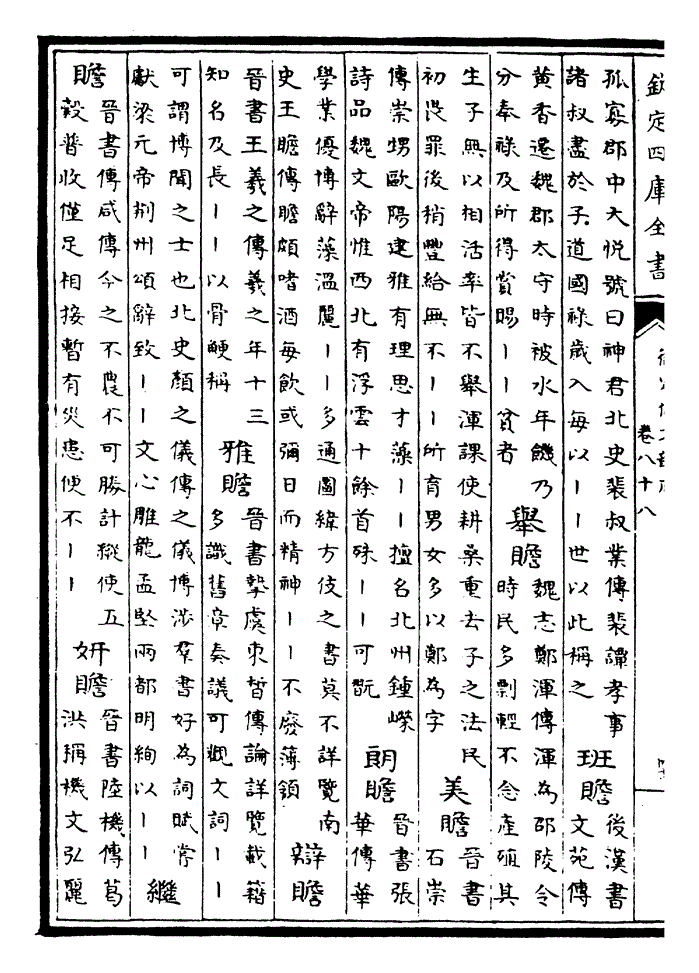 欽定四庫全書
卷八十八
孤寡郡中大悅號曰神君北史裴叔業傳裴譚孝事
諸叔盡於子道國祿歲入每以丨丨世以此稱之
班贍
後漢書
文苑傳
黃香遷魏郡太守時被水年饑乃
分奉祿及所得賞賜丨丨貧者
舉贍
魏志鄭渾傳渾為邵陵令
時民多剽輕不念產殖其
生子無以相活率皆不舉渾課使耕桑重去子之法民
初畏罪後稍豐給無不丨丨所育男女多以鄭為字
美贍
晉書
石崇
傳崇甥歐陽建雅有理思才藻丨丨擅名北州鍾嶸
詩品魏文帝惟西北有浮雲十餘首殊丨丨可翫
朗贍
晉書張
華傳華
學業優博辭藻溫麗丨丨多通圖緯方伎之書莫不詳覽南
史王瞻傳瞻頗嗜酒每飲或彌日而精神丨丨不廢簿領
辯贍
晉書王羲之傳羲之年十三
知名及長丨丨以骨鯁稱
雅贍
晉書摯虞束皙傳論詳覽載籍
多識舊章奏議可觀文詞丨丨
可謂博聞之士也北史顏之儀傳之儀博涉羣書好為詞賦嘗
獻梁元帝荆州頌辭致丨丨文心雕龍孟堅兩都明絢以丨丨
繼
贍
晉書傅咸傳今之不農不可勝計縱使五
穀普收僅足相接暫有災患便不丨丨
妍贍
晉書陸機傳葛
洪稱機文弘麗